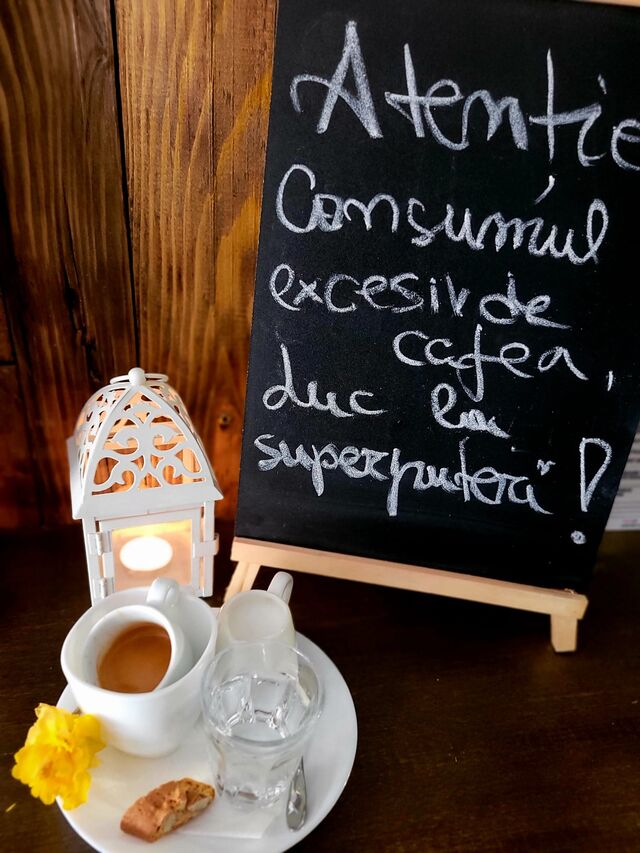 Atenție
Consumul
excesiv de
cafea,
duc la
superputeri" !